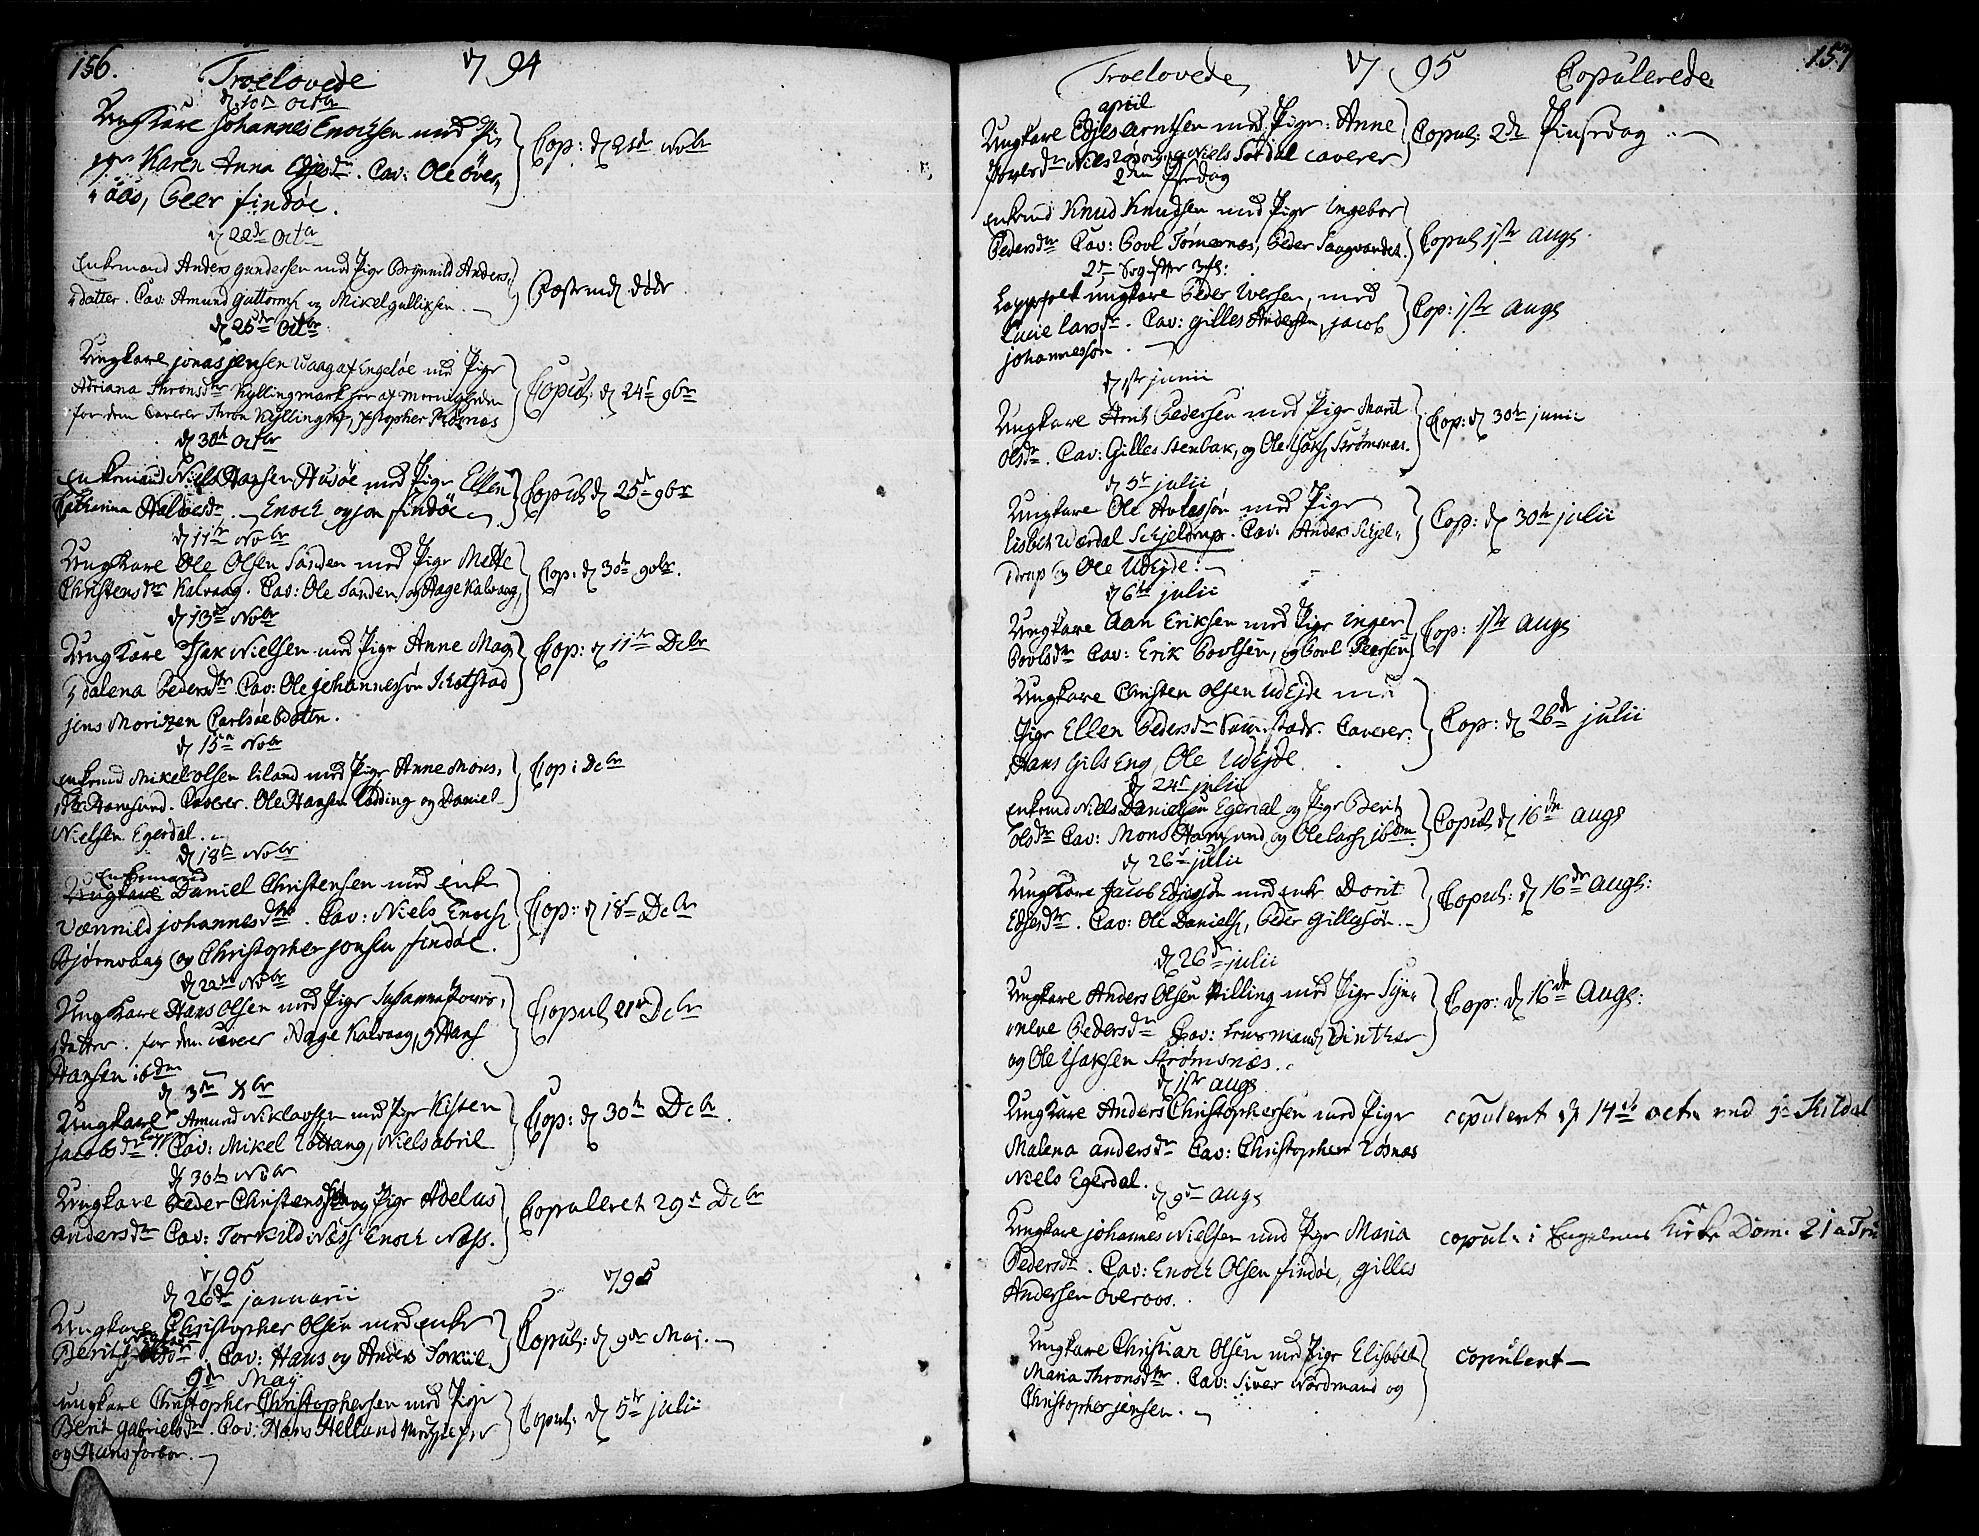 156.
Troelovede 1794
d. 10de Octbr
Ungkare Johannes Enochsen med Pi
ge Karen Anna Edjesdr. Cav: Ole Över,
aas, Peer Findöe. Cop: d. 21de Nobr
d. 22de Octbr
Enkemand Anders Gundersen med Pige Brynnild Anders,
datter. Cav: Amund Guttorms og Mikel Gulliksen. Fæstemd døde
d. 25de Octbr
Ungkare Jonas Jensen Waag af Engeløe med Pige
Adriana Thronsdtr Kyllingmark her af Menigheden
for dem caverer Thron Kyllingm, Xstopher Rösnæs Copul: d. 24de 9br
d. 30te Octbr
Enkemand Niels Hansen Husöe med Pige Ellen
Catharina Halvesdr. Enoch og Jon Findöe Copul: d. 25de 9br
d. 11te Nobr
Ungkare Ole Olsen Sanden med Pige Mette
Christensdtr Kalvaag. Cav: Ole Sanden og Aage Kalvaag. Cop: d. 30te 9obr.
d. 13de Nobr
Ungkare Isak Nielsen med Pige Anne Mag
dalena Pedersdtr. Cav: Ole Johannessøn Skotstad Cop: d. 11te Dcbr
Jens Moritzen Carlsöe Botten.
d. 15de Nobr
Enkemd Mikel Olsen Liland med Pige Anne Mons,
dtr Hamsund. Caverer. Ole Hansen Lödding og Daniel
Nielsen Egerdal. Cop: Dcbr
d. 18de Nobr
Enkemand
Ungkare Daniel Christensen med Enke
Vænnild Johannesdtr. Cav: Niels Enochs
Bjørnvaag og Christopher Jonsen Findöe. Cop: d. 18de Dcbr
d. 22de Nobr
Ungkare Hans Olsen med Pige Susanna
datter. for dem caverer Aage Kalvaag, og Hans
Hansen ibdm Copul: 21de Dcbr
d. 3de Xbr
Ungkare Amund Niklavsen med Pige Kisten
Jacobsdr Cav: Mikel , Niels Abril Cop: d. 30te Dcbr.
d. 30te Nobr
Ungkare Peder Christensen og Pige Adelus
Andersdtr Cav: Torkild Næss Enoch Næss. Copuleret 29de Dcbr
1795 1795
d. 26de Januarii
Ungkare Christopher Olsen med Enke
Berit Olsdr. Cav: Hans og Anders Torkiil Copul: d. 9de Maj.
9de Maij
Ungkare Christopher Christophersen med Pige
Berit Gabrielsdr. Cav: Hans Helland
og Hans Forbor. Copul: d. 5te Julii
157
Troelovede 1795 Copulerede
April
Ungkare Edjes Arntsen med Pige: Anne
Povelsdr Niels og Niels Sørdal caverer Copul: 2den Pinsedag
2den Psedag
Enkemd Knud Knudsen med Pige Ingebor
Pedersdtr Cav: Povl Tömernæs, Peder Saagvandet. Copul: 1ste Augs
2de Søg after 3fh:
Lappfolk Ungkare Peder Iversen, med
Lucie Larsdr. Cav: Gilles Andersen, Jacob
Johannessøn. Cop: 1ste Augs
d. 1ste Junii
Ungkare Arnt Pedersen med Pige Marit
Olsdr. Cav: Gilles Stenbak, og Ole Isaks Strömsnæs. Cop: d. 30te Junii
d. 5te Julii
Ungkare Ole Avlessøn med Pige
Lisbet Wærdal Schjeldrup. Cav: Anders Schjel,
drup og Ole Udejde. Cop: d. 30te Julii
d. 6te Julii
Ungkare Aan Eriksen med Pige Inger
Povlsdtr Cav: Erik Povlsen, og Povl Peersen Cop: 1ste Augs
Ungkare Christen Olsen Udejde med
Pige Ellen Pedersdr . Caverer:
Hans Gils Eng, Ole Udejde Cop: d. 26de Julii
d. 24de Julii
Enkemd Niels Danielsen Egerdal og Pige Berit
Olsdtr Cav: Mons Hamsund og Ole Lars ibdm Copul: d. 16de Augs
d. 26de Julii
Ungkare Jacob med Enke Dorit
Edjesdtr. Cav: Ole Daniels, Peder Gillessön. Copul: d. 16de Augs:
d. 26de Julii
Ungkare Anders Olsen Pilling med Pige Syn,
neve Pedersdr Cav: Winther
og Ole Isaksen Strömsnæs. Cop: d. 16de Augs:
d. 1ste Augs
Ungkare Anders Christophersen med Pige
Malena Andersdtr Cav: Christopher Løsnæs
Niels Egerdal. copulert d. 14de octr ved Hr Kildal
d. 9de Augs
Ungkare Johannes Nielsen med Pige Maria
Pedersdr. Cav: Enoch Olsen Findöe, Gilles
Andersen Overaas. copul: i Engelöens Kirke Dom: 21 a Tri
Ungkare Christian Olsen med Pige Elisabet
Maria Thronsdtr. Cav: Siver Nordmand og
Christopher Jensen. copulert